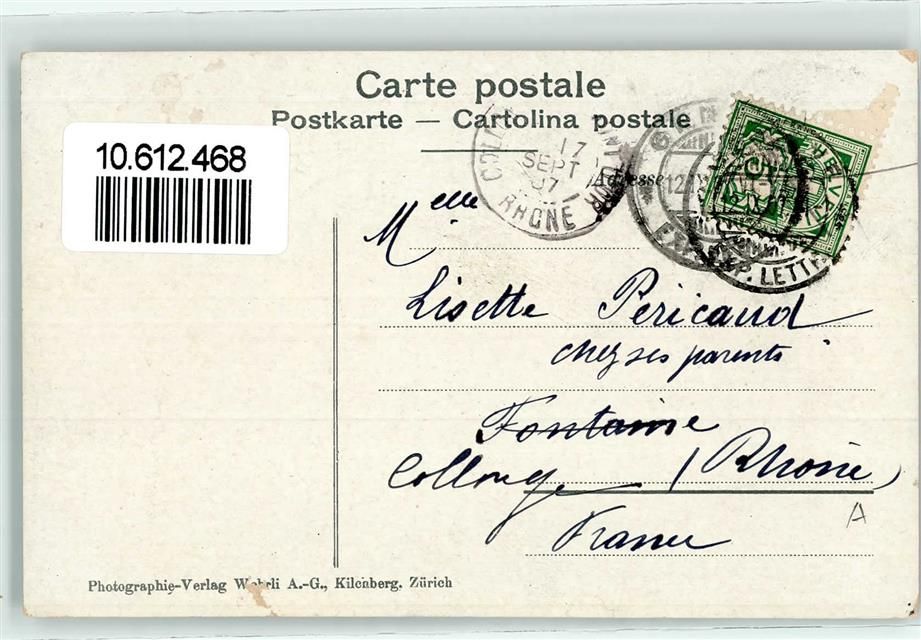 Carte postale
Postkarte — Cartolina postale
10.612.468
17
SEPT
07
RHONE
Adresse
EXP. LETT
HELVETIA
Melle
Lisette Pericaud
chez ses parents
Fontaine
Collonge (Rhône)
France
A
Photographie-Verlag Wehrli A.-G., Kilchberg. Zürich